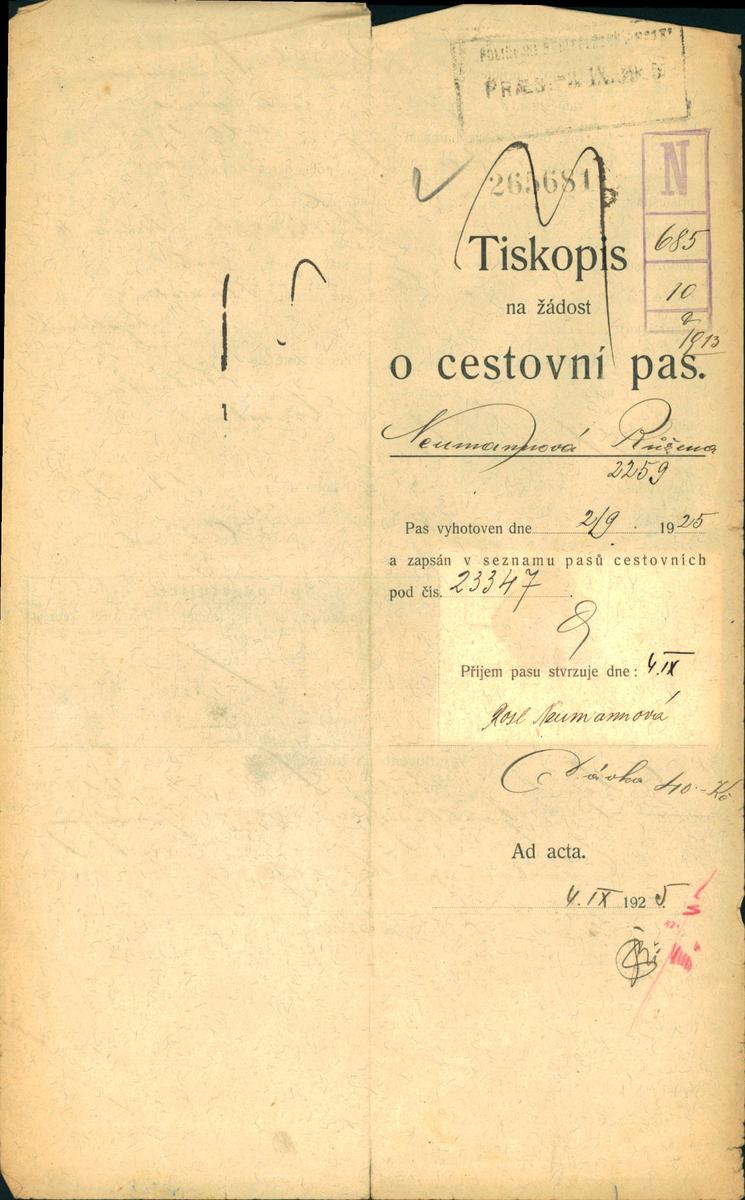 PRÆS.
265681
N
685
10
Tiskopis
na žádost
1913
o cestovní pas.
Neumannová Růžena
2259
Pas vyhotoven dne 2/9. 1925
a zapsán v seznamu pasů cestovních
pod čís. 23347
Příjem pasu stvrzuje dne: 4.IX
Rosl Neumannová
Dávka 40.- Kč
Ad acta.
4.IX 1925